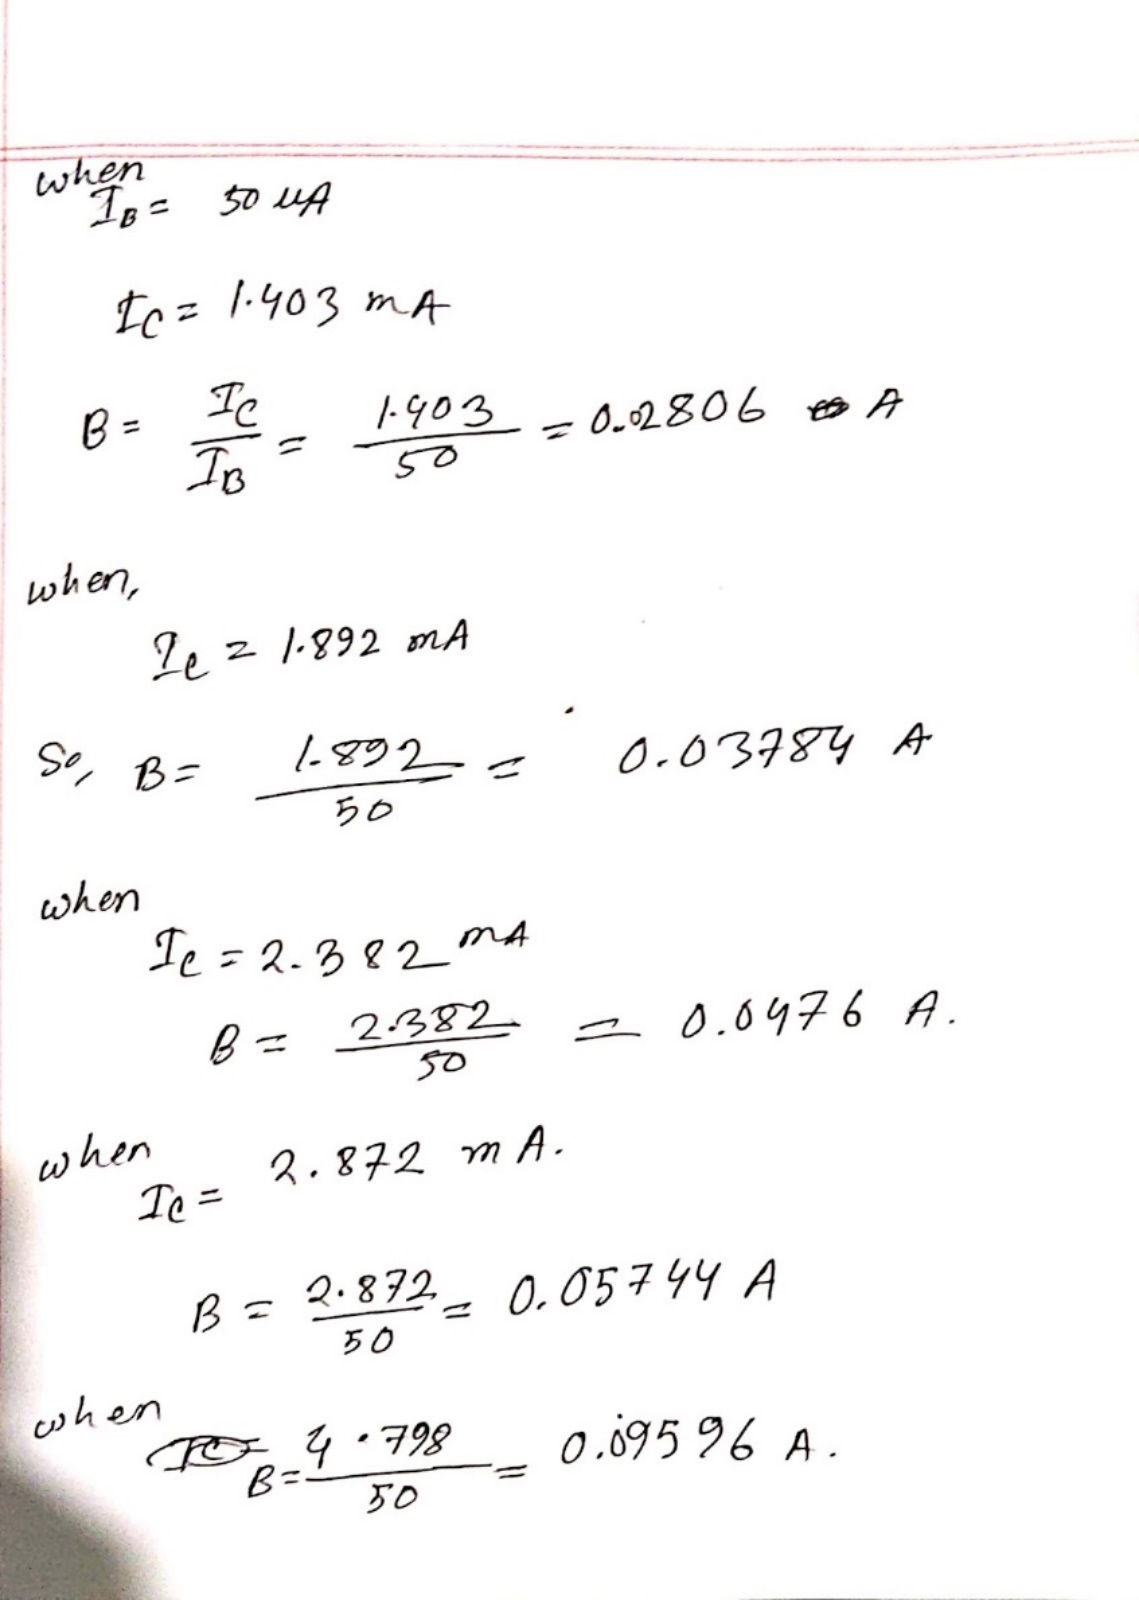 when
I_B = 50 uA
I_C = 1.403 mA
B = I_C / I_B = 1.403 / 50 = 0.02806 A
when,
I_c = 1.892 mA
So, B = 1.892 / 50 = 0.03784 A
when
I_c = 2.382 mA
B = 2.382 / 50 = 0.0476 A.
when
I_c = 2.872 mA.
B = 2.872 / 50 = 0.05744 A
when
B = 4.798 / 50 = 0.09596 A.